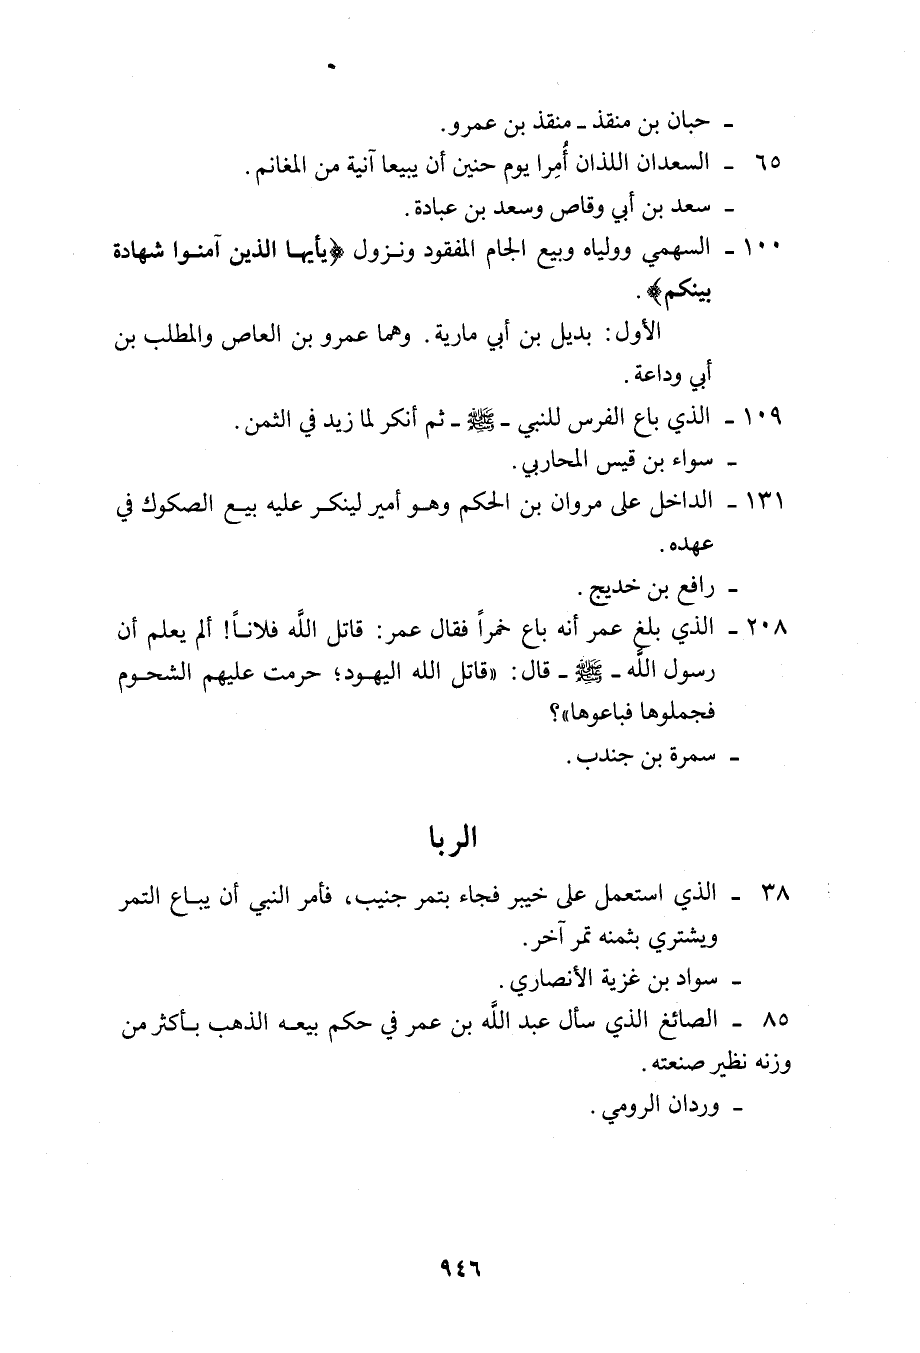 ـ حبان بن منقذ ـ منقذ بن عمرو.
٦٥ ـ السعدان اللذان أُمِرا يوم حنين أن يبيعا آنية من المغانم.
ـ سعد بن أبي وقاص وسعد بن عبادة.
١٠٠ ـ السهمي وولياه وبيع الجام المفقود ونزول ﴿يأيها الذين آمنوا شهادة
بينكم﴾.
الأول: بديل بن أبي مارية. وهما عمرو بن العاص والمطلب بن
أبي وداعة.
١٠٩ ـ الذي باع الفرس للنبي ـ ﷺ ـ ثم أنكر لما زيد في الثمن.
ـ سواء بن قيس المحاربي.
١٣١ ـ الداخل على مروان بن الحكم وهو أمير لينكر عليه بيع الصكوك في
عهده.
ـ رافع بن خديج.
٢٠٨ ـ الذي بلغ عمر أنه باع خمراً فقال عمر: قاتل اللَّه فلاناً! ألم يعلم أن
رسول اللَّه ـ ﷺ ـ قال: «قاتل الله اليهود؛ حرمت عليهم الشحوم
فجملوها فباعوها»؟
ـ سمرة بن جندب.
الربا
٣٨ ـ الذي استعمل على خيبر فجاء بتمر جنيب، فأمر النبي أن يباع التمر
ويشتري بثمنه تمر آخر.
ـ سواد بن غزية الأنصاري.
٨٥ ـ الصائغ الذي سأل عبد اللَّه بن عمر في حكم بيعه الذهب بأكثر من
وزنه نظير صنعته.
ـ وردان الرومي.
٩٤٦